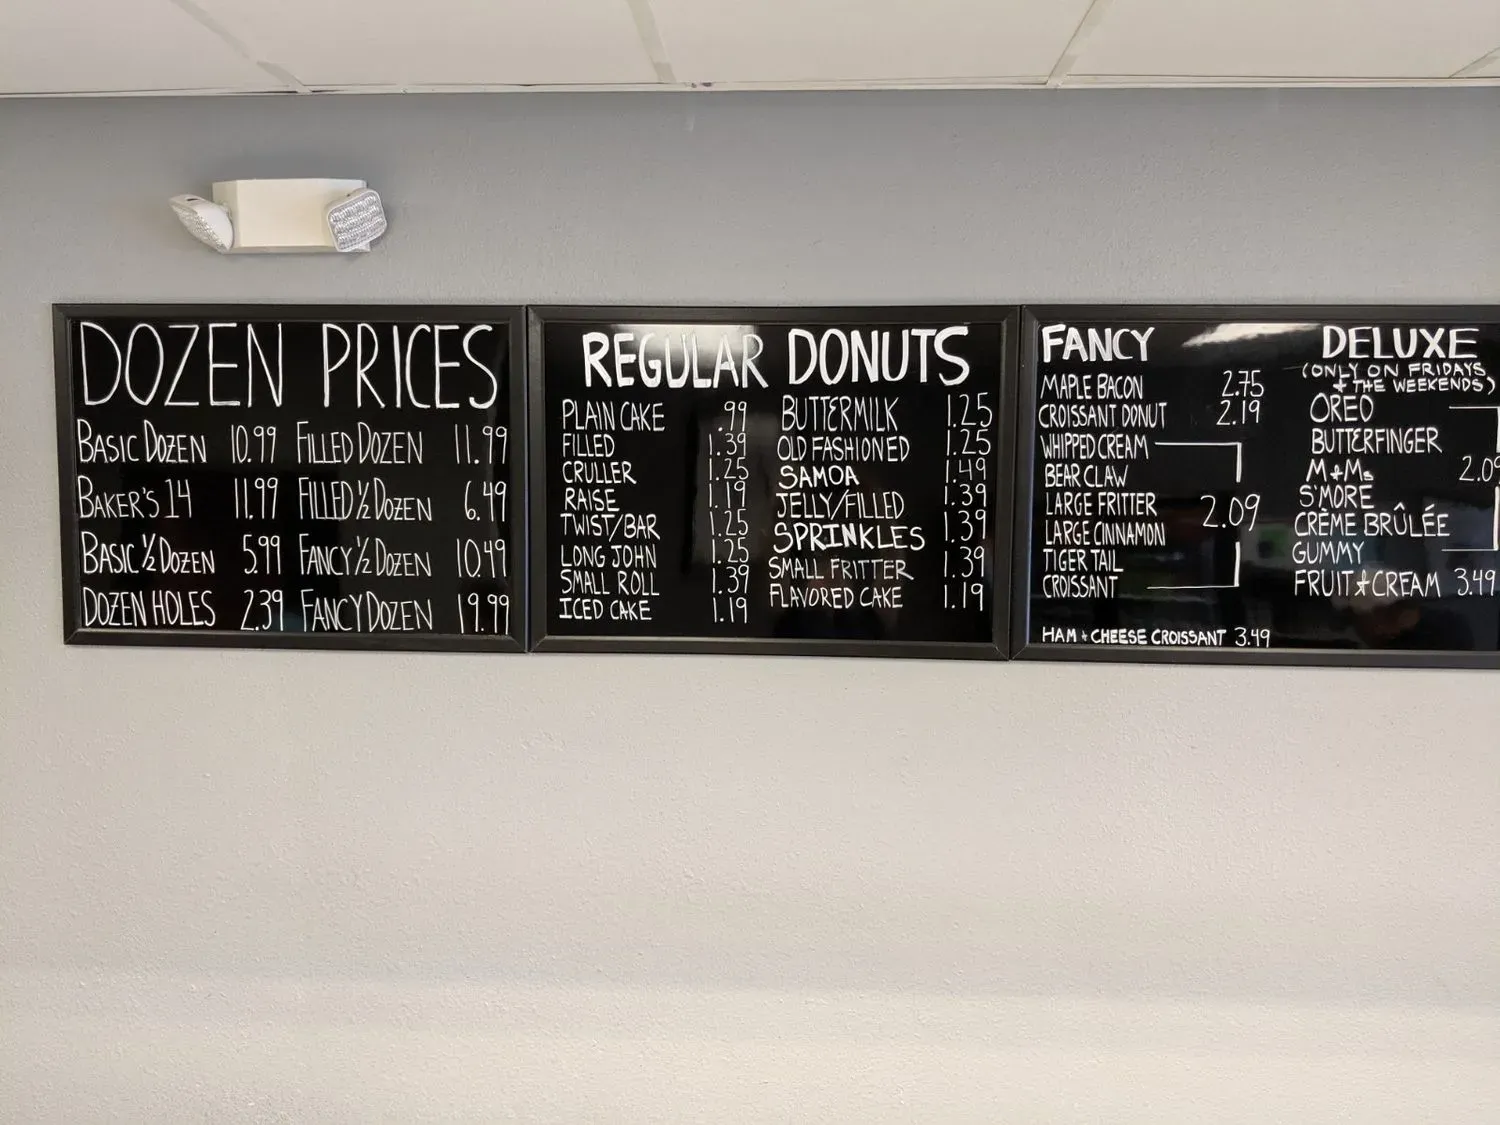 DOZEN PRICES
BASIC DOZEN 10.99 FILLED DOZEN 11.99
BAKER'S 14 11.99 FILLED ½ DOZEN 6.49
BASIC ½ DOZEN 5.99 FANCY ½ DOZEN 10.49
DOZEN HOLES 2.39 FANCY DOZEN 19.99
REGULAR DONUTS
PLAIN CAKE .99 BUTTERMILK 1.25
FILLED 1.39 OLD FASHIONED 1.25
CRULLER 1.25 SAMOA 1.49
RAISE 1.19 JELLY/FILLED 1.39
TWIST/BAR 1.25 SPRINKLES 1.39
LONG JOHN 1.25 SMALL FRITTER 1.39
SMALL ROLL 1.39 FLAVORED CAKE 1.19
ICED CAKE 1.19
FANCY
MAPLE BACON 2.75
CROISSANT DONUT 2.19
WHIPPED CREAM
BEAR CLAW
LARGE FRITTER 2.09
LARGE CINNAMON
TIGER TAIL
CROISSANT
HAM + CHEESE CROISSANT 3.49
DELUXE
(ONLY ON FRIDAYS
+ THE WEEKENDS)
OREO
BUTTERFINGER
M+Ms 2.09
S'MORE
CRÈME BRÛLÉE
GUMMY
FRUIT + CREAM 3.49